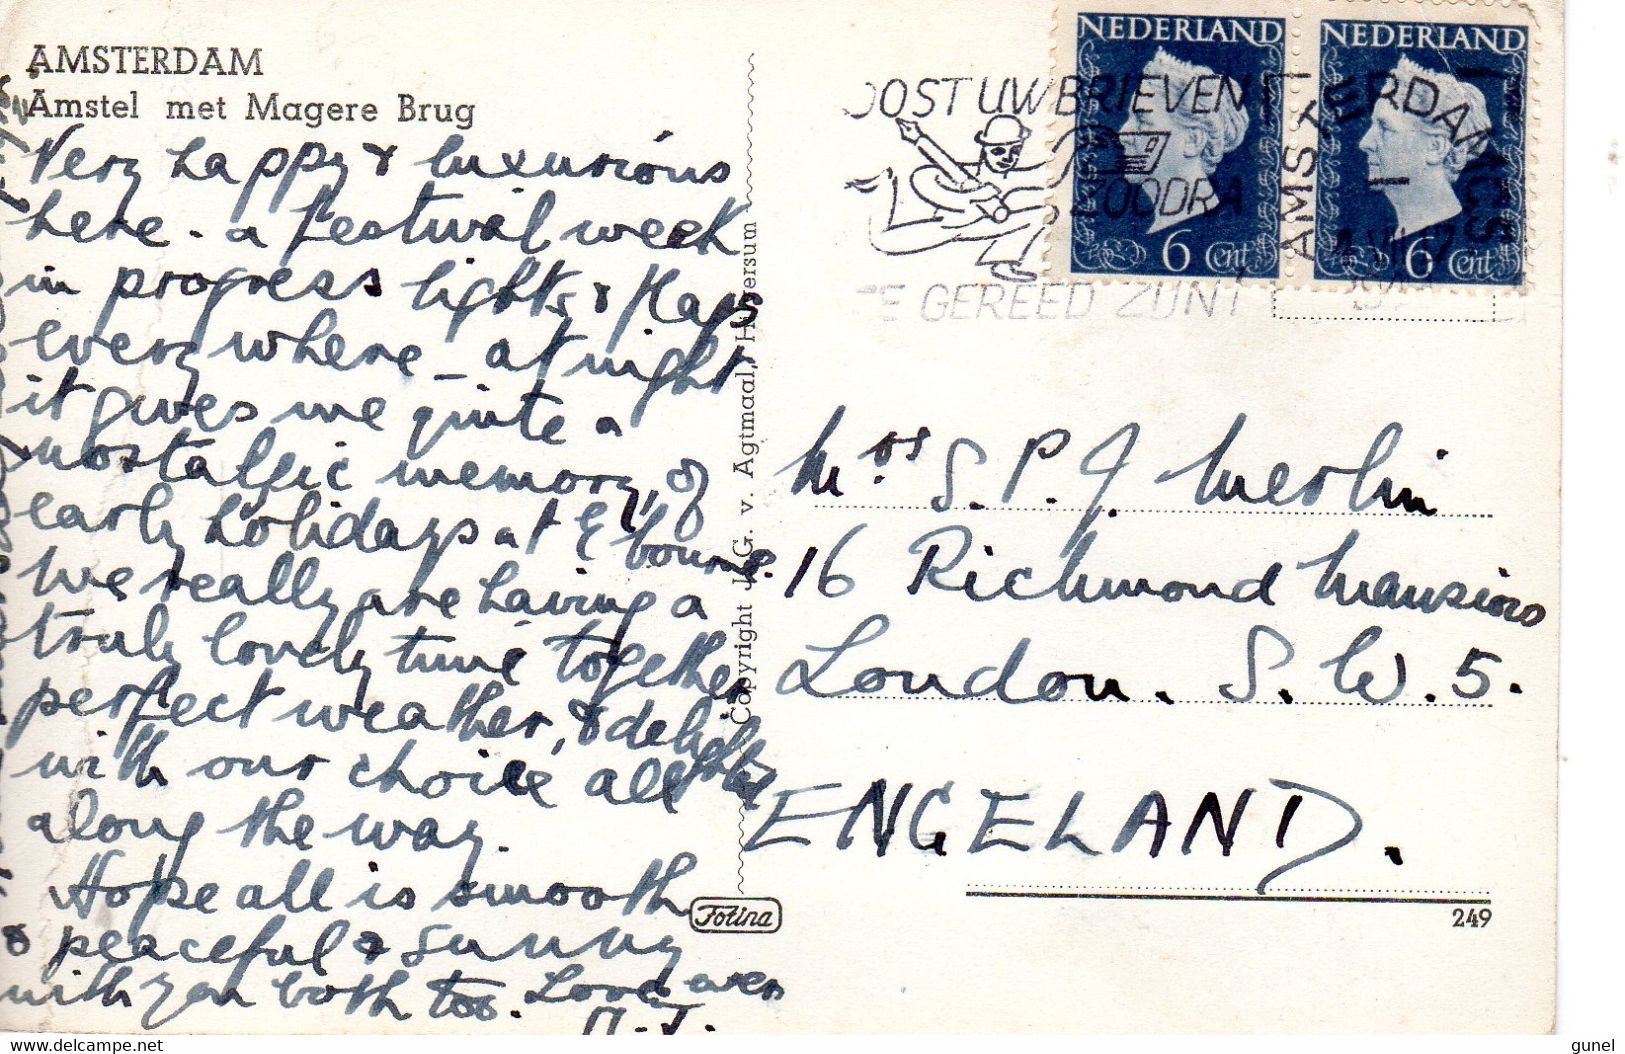 AMSTERDAM
Amstel met Magere Brug
Very happy & luxurious
here - a festival week
in progress lights & flags
everywhere - at night
it gives me quite a
nostalgic memory of
early holidays at E'bourne.
We really are having a
truly lovely time together
perfect weather, & delighted
with our choice all
along the way.
Hope all is smooth
& peaceful & sunny
with you both too. Love ever
M. J.
Copyright J. G. v. Agtmaal, Hilversum
Fotina
NEDERLAND
6 Cent
NEDERLAND
6 Cent
POST UW BRIEVEN
ZOODRA
ZE GEREED ZIJN!
AMSTERDAM C.S.
Mrs. S. P. J. Merlin
16 Richmond Mansions
London. S. W. 5.
ENGELAND.
249
gunel